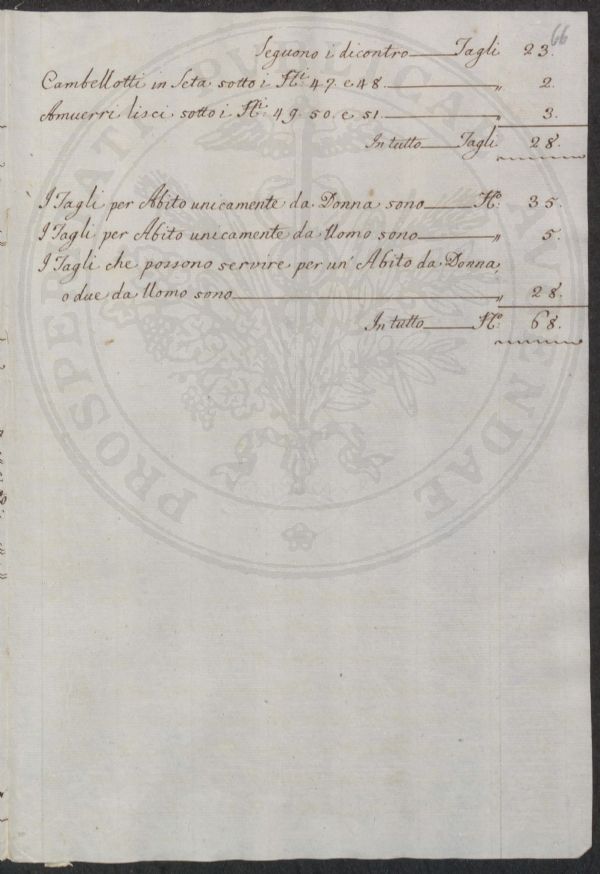 66
Seguono i dicontro Tagli 23.
Cambellotti in Seta sotto i N.i 47. e 48. „ 2.
Amuerri lisci sotto i N.i 49. 50. e 51. „ 3.
In tutto Tagli 28.
I Tagli per Abito unicamente da Donna sono N.o 35.
I Tagli per Abito unicamente da Uomo sono „ 5.
I Tagli che possono servire per un' Abito da Donna,
o due da Uomo sono „ 28.
In tutto N.o 68.
PROSPERITATI PUBLICAE AUGENDAE